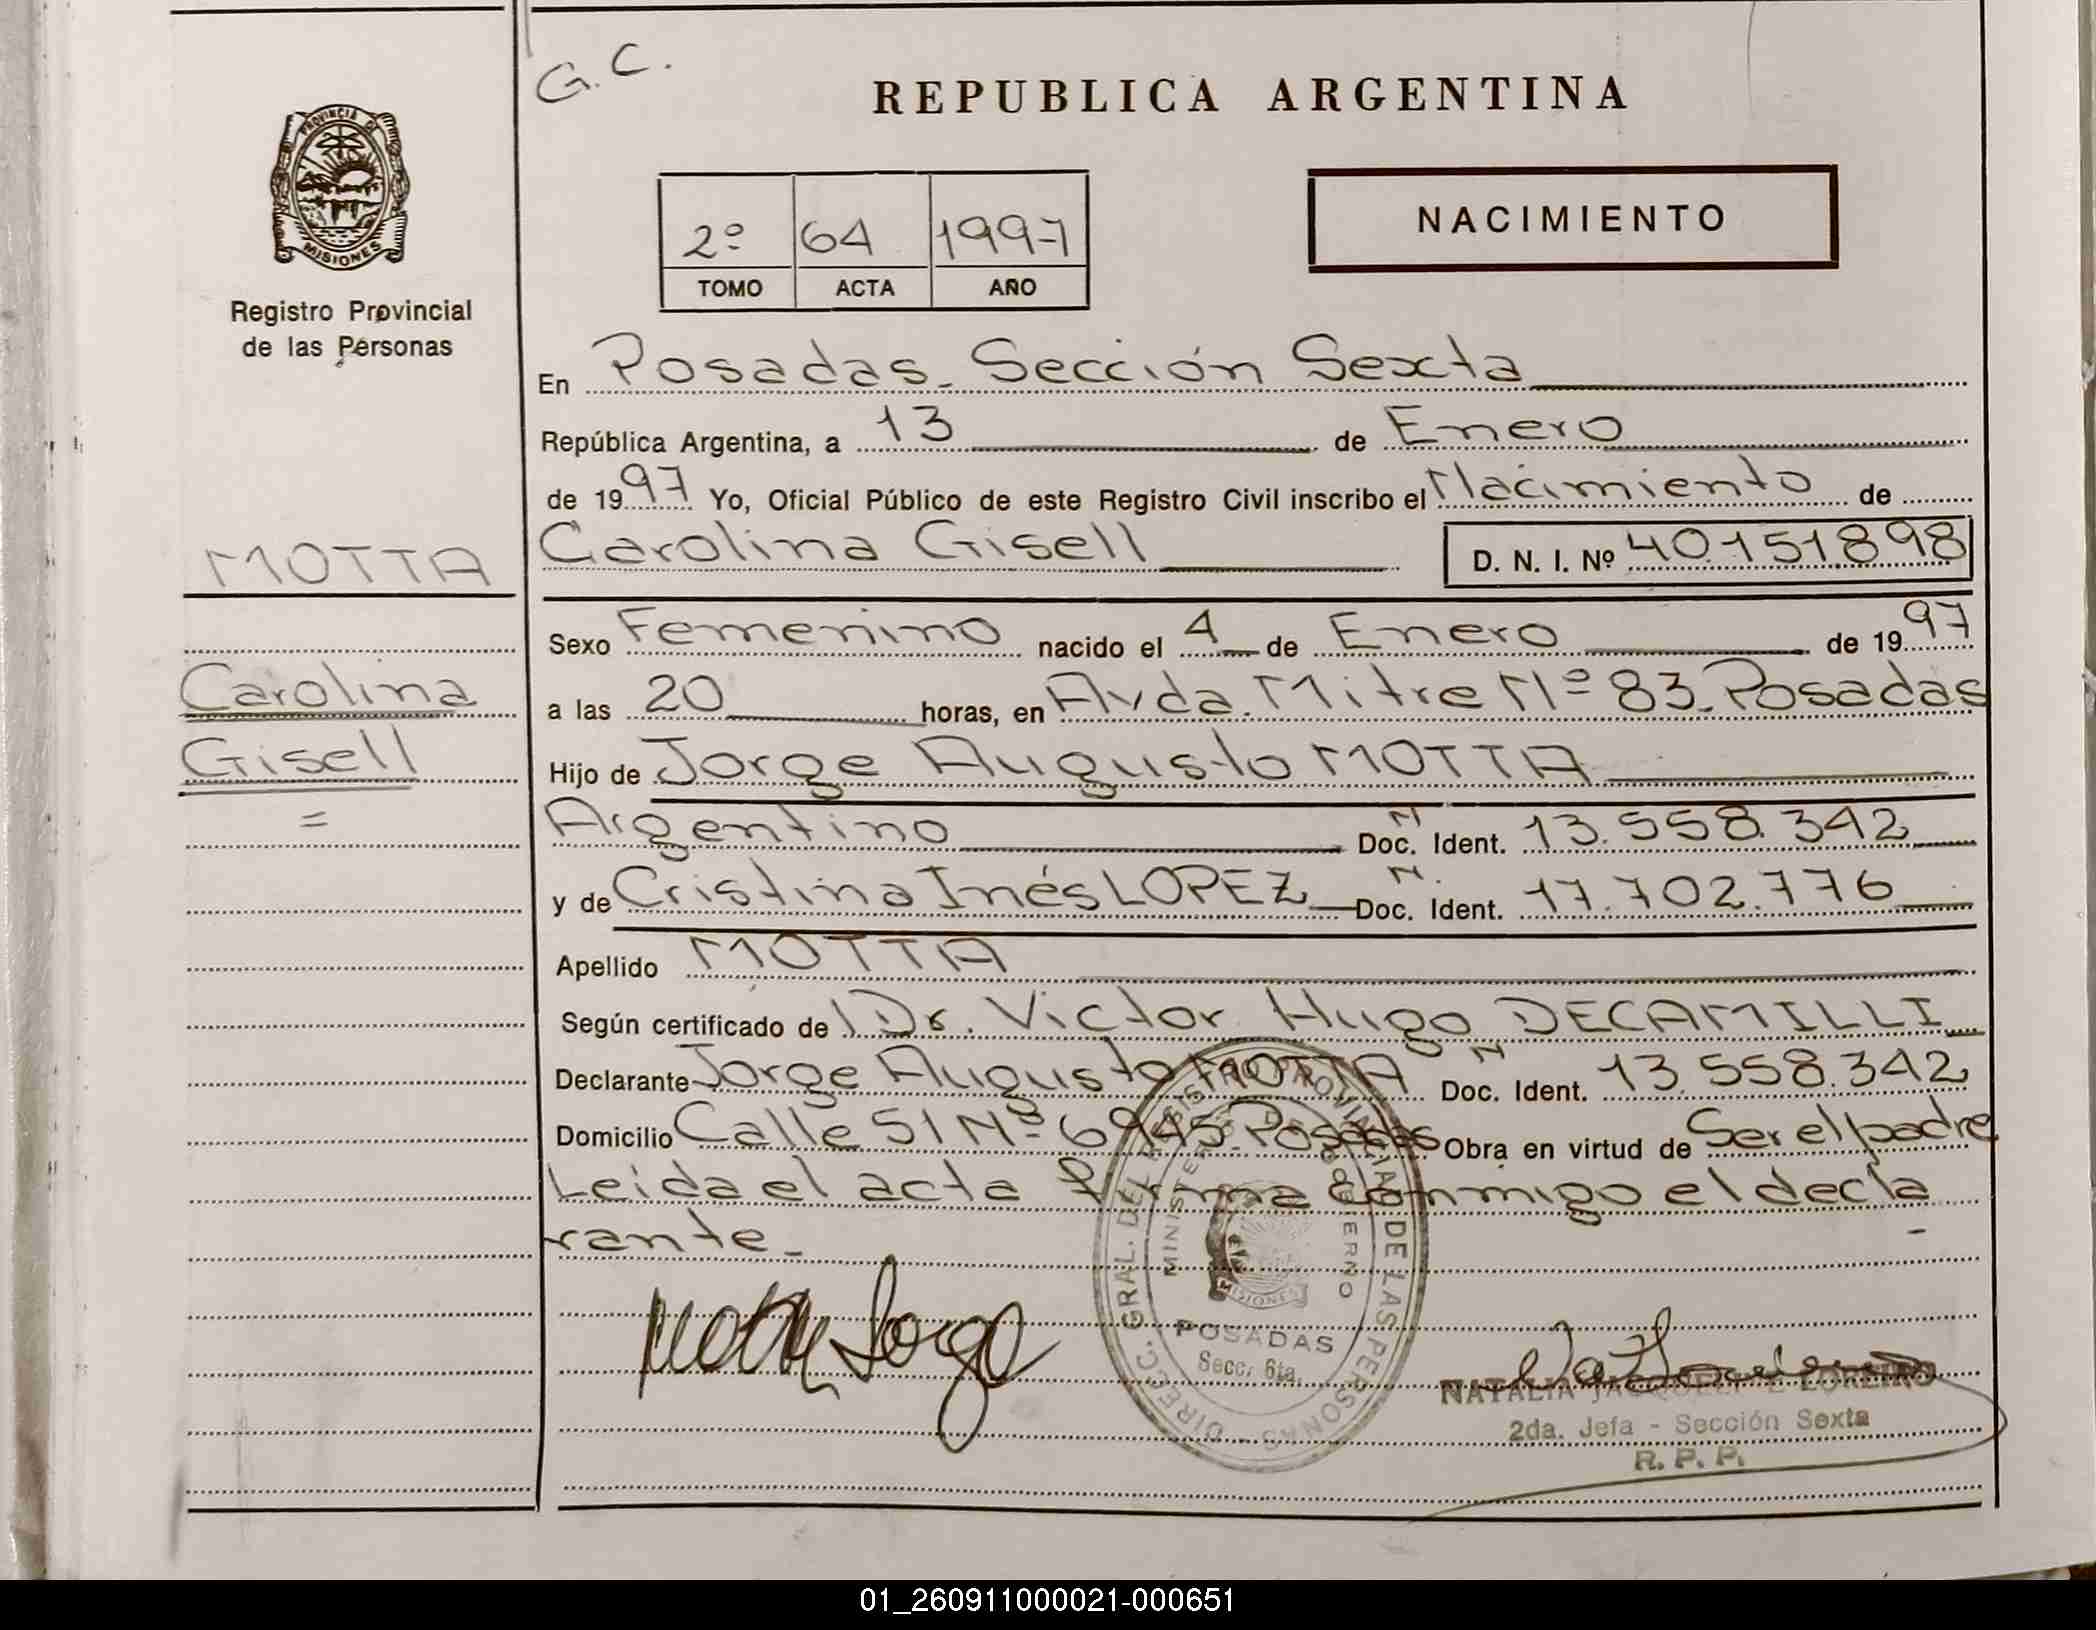 G. C.
REPUBLICA ARGENTINA
PROVINCIA DE
MISIONES
Registro Provincial
de las Personas
2º 64 1997
TOMO ACTA AÑO
NACIMIENTO
En Posadas. Sección Sexta
República Argentina, a 13 de Enero
de 1997 Yo, Oficial Público de este Registro Civil inscribo el Nacimiento de
MOTTA
Carolina Gisell D. N. I. Nº 40.151.898
Sexo Femenino nacido el 4 de Enero de 1997
Carolina
a las 20 horas, en Avda. Mitre Nº 83. Posadas
Gisell
Hijo de Jorge Augusto MOTTA
=
Argentino Doc. N Ident. 13.558.342
y de Cristina Inés LOPEZ Doc. N. Ident. 17.702.776
Apellido MOTTA
Según certificado de Dr. Victor Hugo DECAMILLI
Declarante Jorge Augusto MOTTA Doc. N Ident. 13.558.342
Domicilio Calle 51 Nº 6945. Posadas Obra en virtud de Ser el padre
Leida el acta firma conmigo el decla
rante.-
DIRECC. GRAL. DEL REGISTRO PROVINCIAL DE LAS PERSONAS
MINISTERIO DE GOBIERNO
MISIONES
POSADAS
Secc. 6ta.
Motta Jorge
NATALIA JACQUELINE LOREIRO
2da. Jefa - Sección Sexta
R. P. P.
01_260911000021-000651